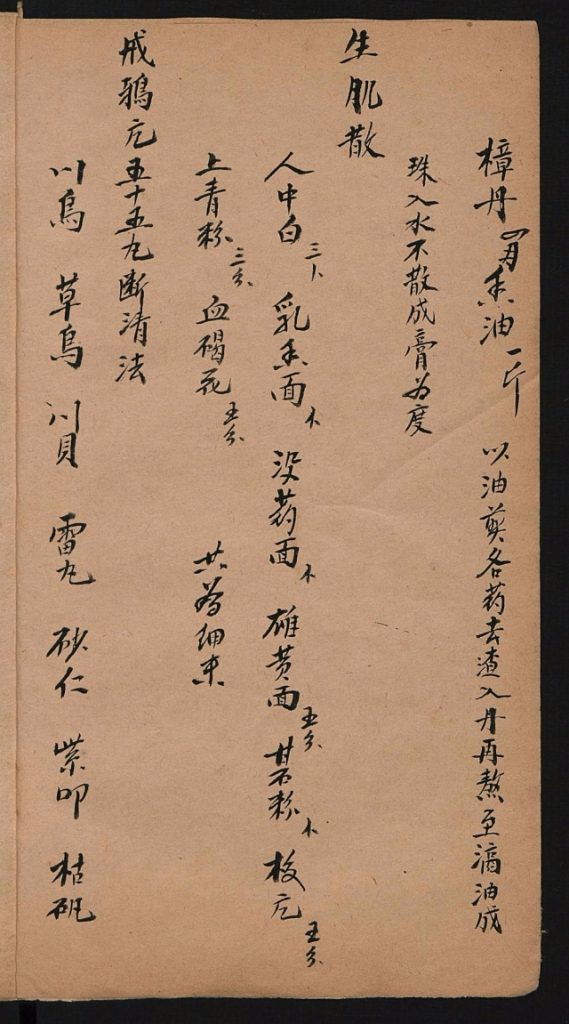 樟丹 四两 香油 一斤 以油煎各药去渣入丹再熬至滴油成
珠入水不散成膏为度
生肌散
人中白 三 乳香面 没药面 雄黄面 五分 甘石粉 梅片 五分
上青粉 三分 血碣花 五分 共为细末
戒鸦片五十五丸断清法
川乌 草乌 川贝 雷丸 砂仁 紫叩 枯矾